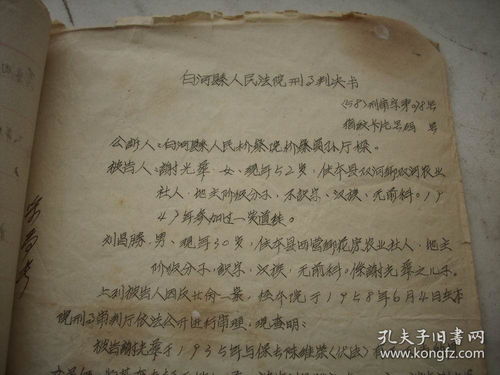 白河县人民法院刑事判决书
(58)刑审字第 号
指纹卡片号码 号
公诉人:白河县人民检察院检察员孙厅保。
被告人:谢光华,女,现年52岁,住本县双河乡双河农业
社人,地主阶级分子,不识字,汉族,无前科。19
47年参加过一贯道徒。
刘昌胜,男,现年30岁,住本县西营乡花房农业社人,地主
阶级分子,识字,汉族,无前科。系谢光华之儿子。
上列被告人因反革命一案,经本院于1958年6月4日在本
院刑事审判厅依法公开进行审理,现查明:
被告谢光华于1935年与保长陈维荣(伏法)
孔夫子旧书网
www.kongfz.com